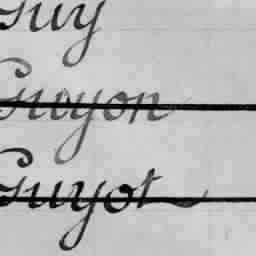 Guy
Guyon
Guyot